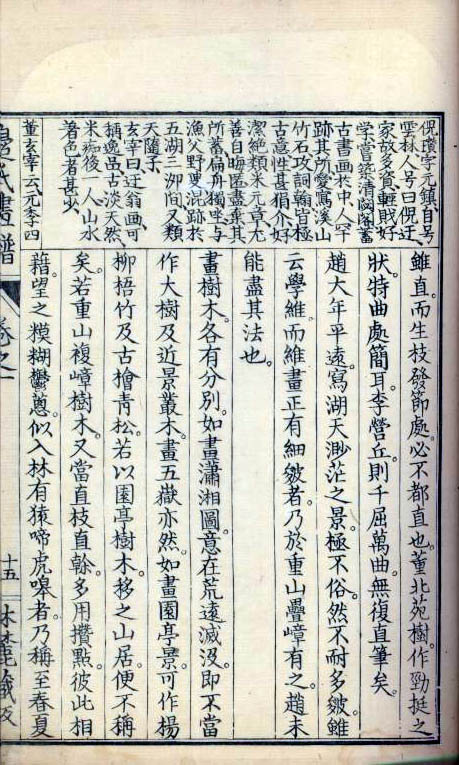 倪瓚字元鎮自号
雲林人号曰倪迂
家故多資輕貲好
學嘗築清閟閣蓄
古書画於中人罕
跡其所愛寫溪山
竹石攻詞翰皆極
古意性甚狷介好
潔絕類米元章尤
善自晦匿盡棄其
所蓄扁舟獨坐与
漁父野叟混跡於
五湖三泖間又類
天隨子
玄宰曰迂翁画可
稱逸品古淡天然
米痴後一人山水
著色者甚少
董玄宰云元季四
雖直而生枝發節處。必不都直也。董北苑樹。作勁挺之
狀。特曲處簡耳。李營丘則千屈萬曲。無復直筆矣。
趙大年平遠。寫湖天渺茫之景。極不俗。然不耐多皴。雖
云學維。而維畫正有細皴者。乃於重山疊嶂有之。趙未
能盡其法也。
畫樹木。各有分別。如畫瀟湘圖。意在荒遠滅沒。即不當
作大樹及近景叢木。畫五嶽亦然。如畫園亭景。可作楊
柳梧竹及古檜青松。若以園亭樹木移之山居。便不稱
矣。若重山複嶂。樹木又當直枝直榦。多用攢點。彼此相
藉。望之模糊鬱蔥。似入林有猿啼虎嗥者。乃稱。至春夏
畫譜
卷之一
十五